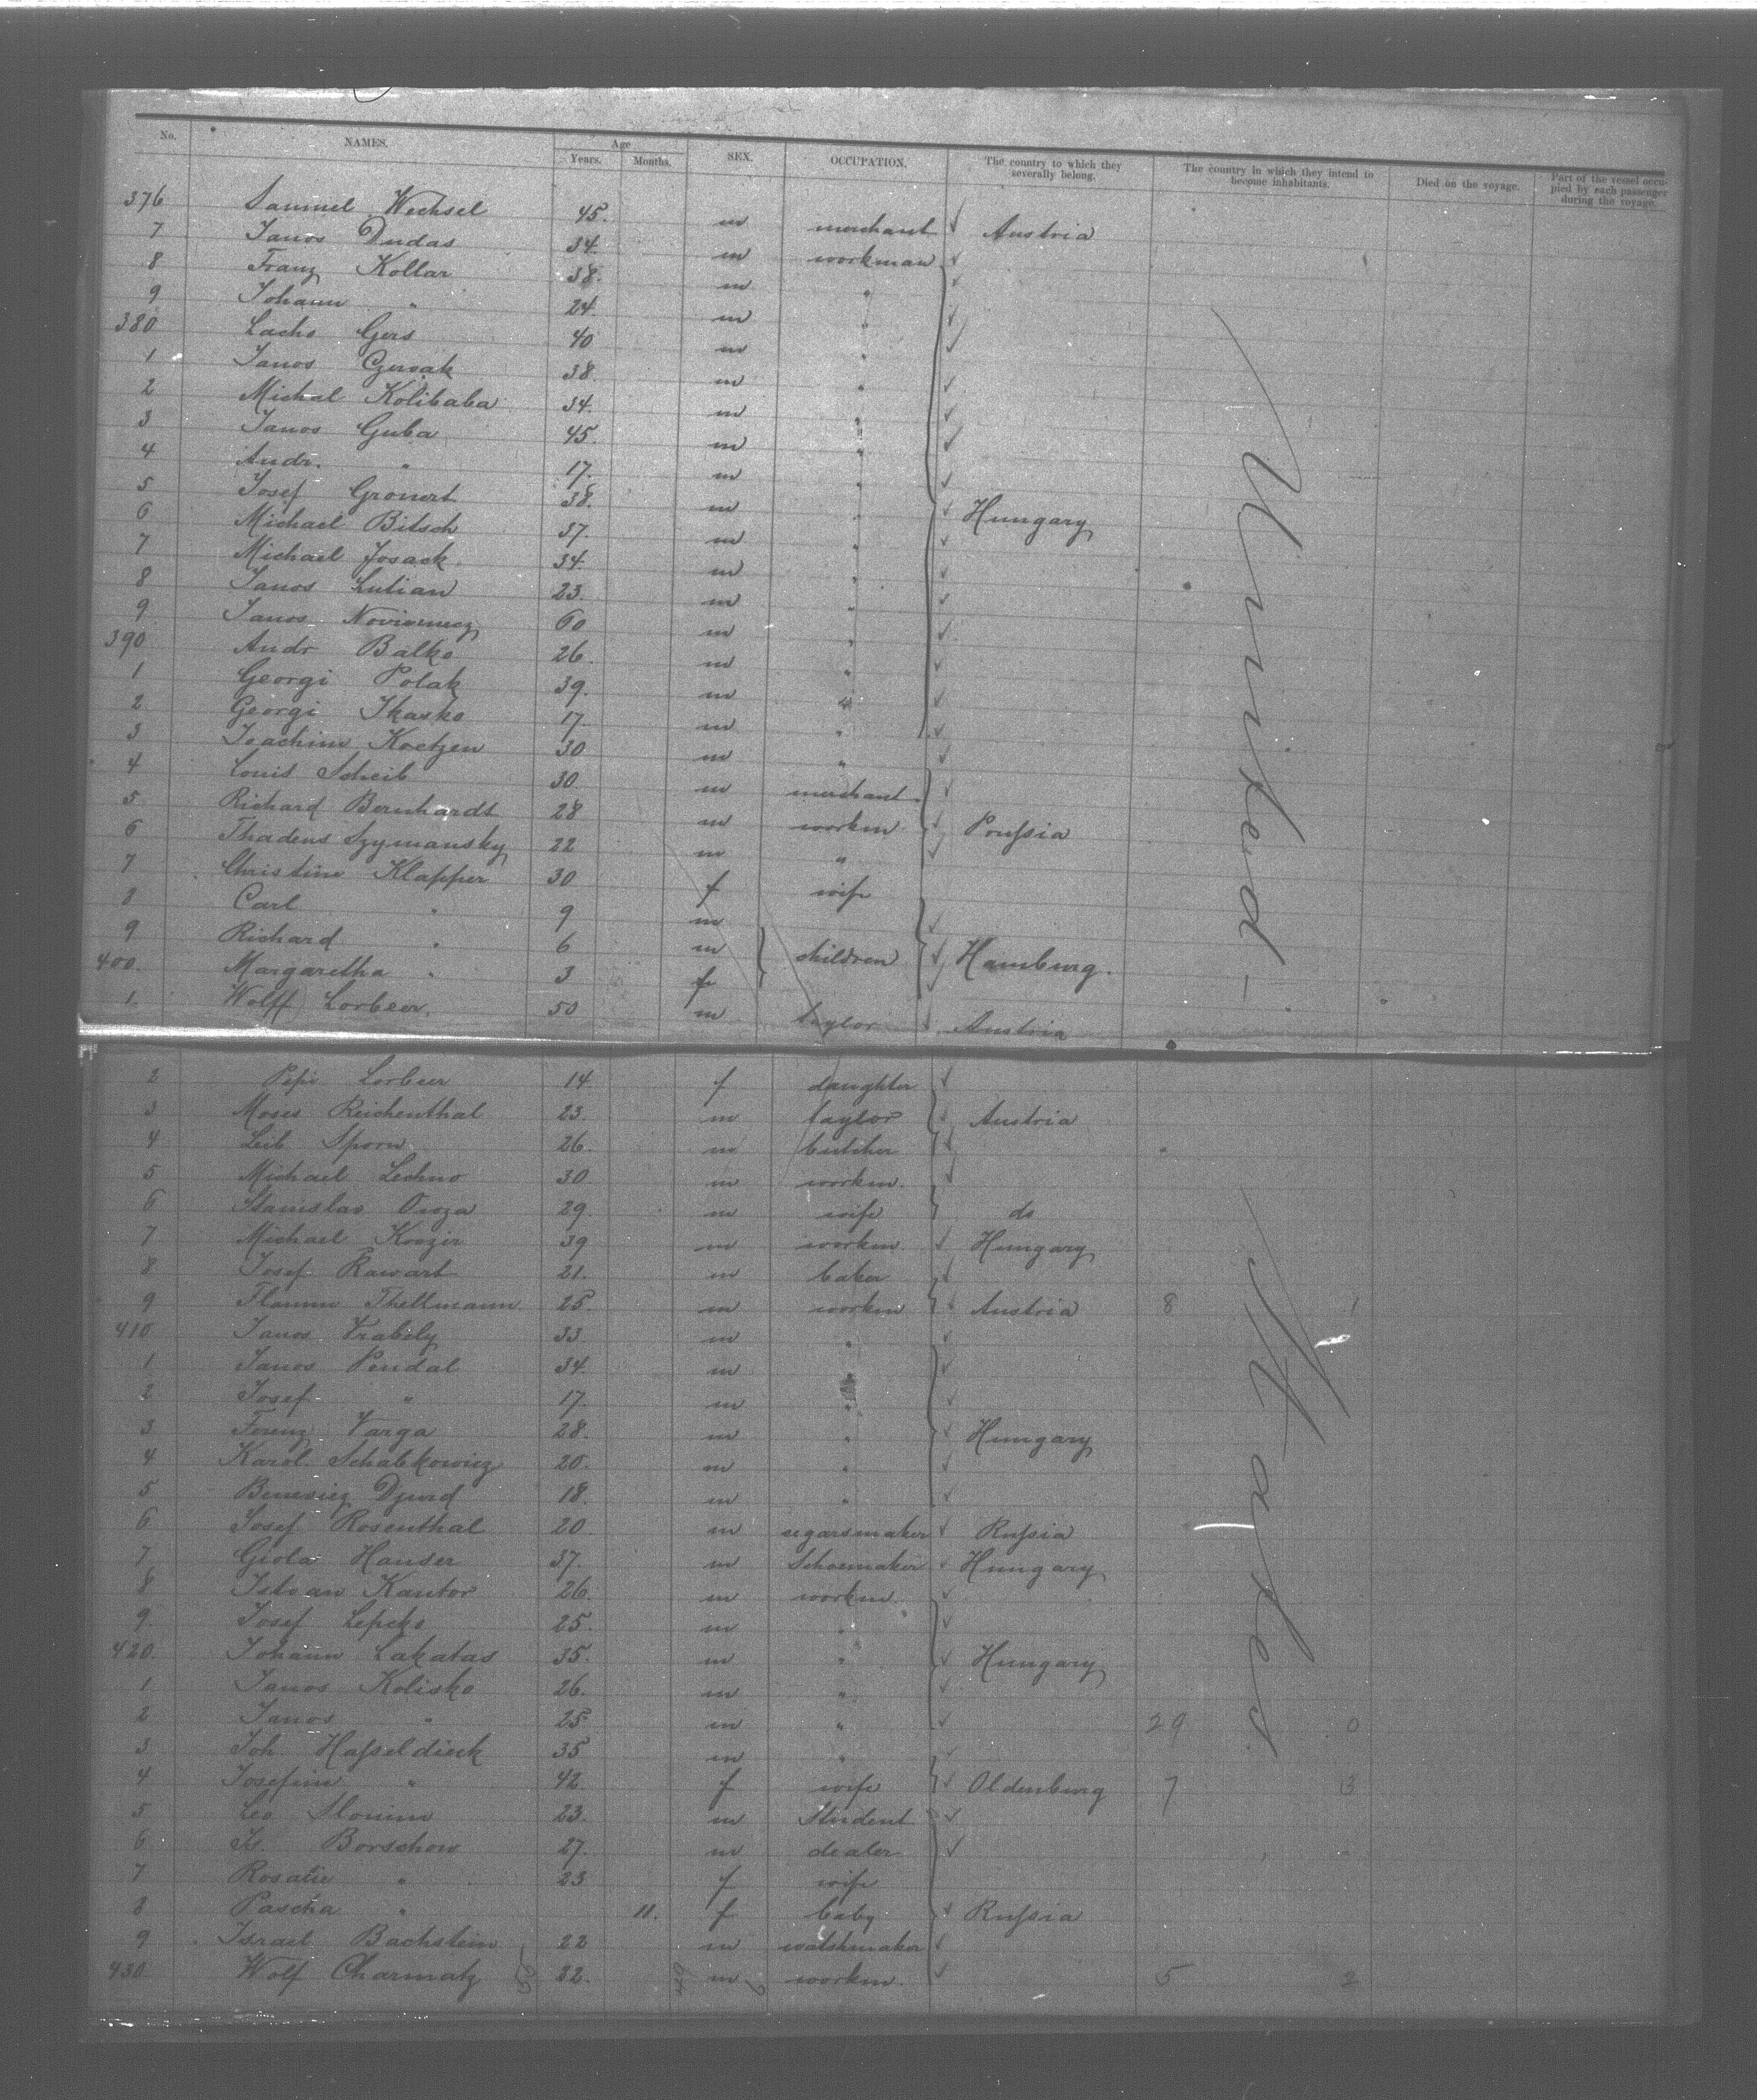 No. NAMES. Age Years. Months. SEX. OCCUPATION. The country to which they severally belong. The country in which they intend to become inhabitants. Died on the voyage. Part of the vessel occupied by each passenger during the voyage.
376 Samuel Wechsel 45. m merchant Austria
7 Janos Dudas 34. m workman
8 Franz Kollar 38. m "
9 Johann " 24. m "
380 Lacho Gers 40 m "
1 Janos 38. m "
2 Michal Kolibaba 34. m "
3 Janos Guba 45. m "
4 Andr. " 17. m "
5 Josef Gronert 38. m " Hungary
6 Michael Bitsch 37. m "
7 Michael Josack 34. m "
8 Janos Lulian 23. m "
9 Janos 60 m "
390. Andr Balko 26. m "
1 Georgi Polak 39. m "
2 Georgi Ikasko 17. m "
3 Joachim Koetzen 30 m "
4 Louis Scheib 30. m merchant
5 Richard Bernhardt 28 m workm. Prussia
6 Thadeus Szymansky 22 m "
7 Christine Klapper 30 f wife
8 Carl " 9 m
9 Richard " 6 m children Hamburg.
400. Margaretha " 3 f
1. Wolff Lorbeer. 50 m taylor Austria
2 Pepi Lorbeer 14 f daughter
3 Moses Reichenthal 23. m taylor Austria
4 Leib Sporn 26. m butcher
5 Michael Lechno 30. m workm.
6 Stanislav 29. m wife do
7 Michael 39 m workm. Hungary
8 Josef Rawart 21. m baker
9 Thellmann 25. m workm Austria 8 1
410 Janos Vrabely 33 m "
1 Janos Pendal 34. m "
2 Josef " 17. m "
3 Ferenz Varga 28. m " Hungary
4 Karol. Schabkowicz 20. m "
5 Djurd 18. m "
6 Josef Rosenthal 20 m segarsmaker Russia
7 Giola Hauser 37. m Schoemaker Hungary
8 Istvan Kantor 26. m workm.
9. Josef Lepcko 25. m "
420. Johann Lakatas 35. m " Hungary
1 Janos Kolisko 26. m "
2 Janos " 25 m " 29 0
3 Joh. Hasseldieck 35 m "
4 Josefine " 42. f wife Oldenburg 7 3
5 Leo Slonim 23. m Student
6 Is. Borschow 27. m dealer
7 Rosalie " 23 f wife
8 Pascha " 11. f baby Russia
9 Israel Bachstein 22 m watshmaker
430. Wolf Charmatz 22. m workm. 5 2
United -
States